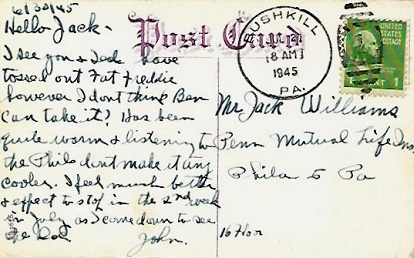 6/30/45
Hello Jack-
I see you & Dad have
tossed out Fat Freddie
however I dont think Ben
can take it! Has been
quite warm & listening to
the Phils dont make it any
cooler. I feel much better
& expect to stop in the 2nd week
in July as I come down to see
the Doc.
John.
Post Card
BUSHKILL
8 AM
1945
PA.
1
Mr Jack Williams
Penn Mutual Life Ins
Phila 5 Pa
16 Floor